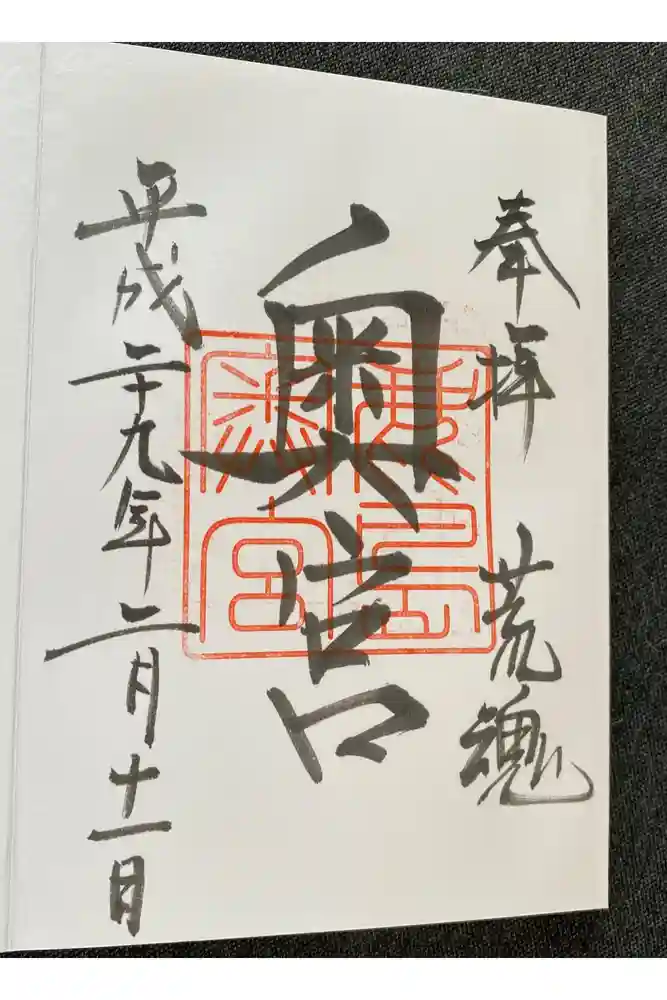 奉拝 荒魂
奥宮
鹿島奥宮
平成二十九年二月十一日